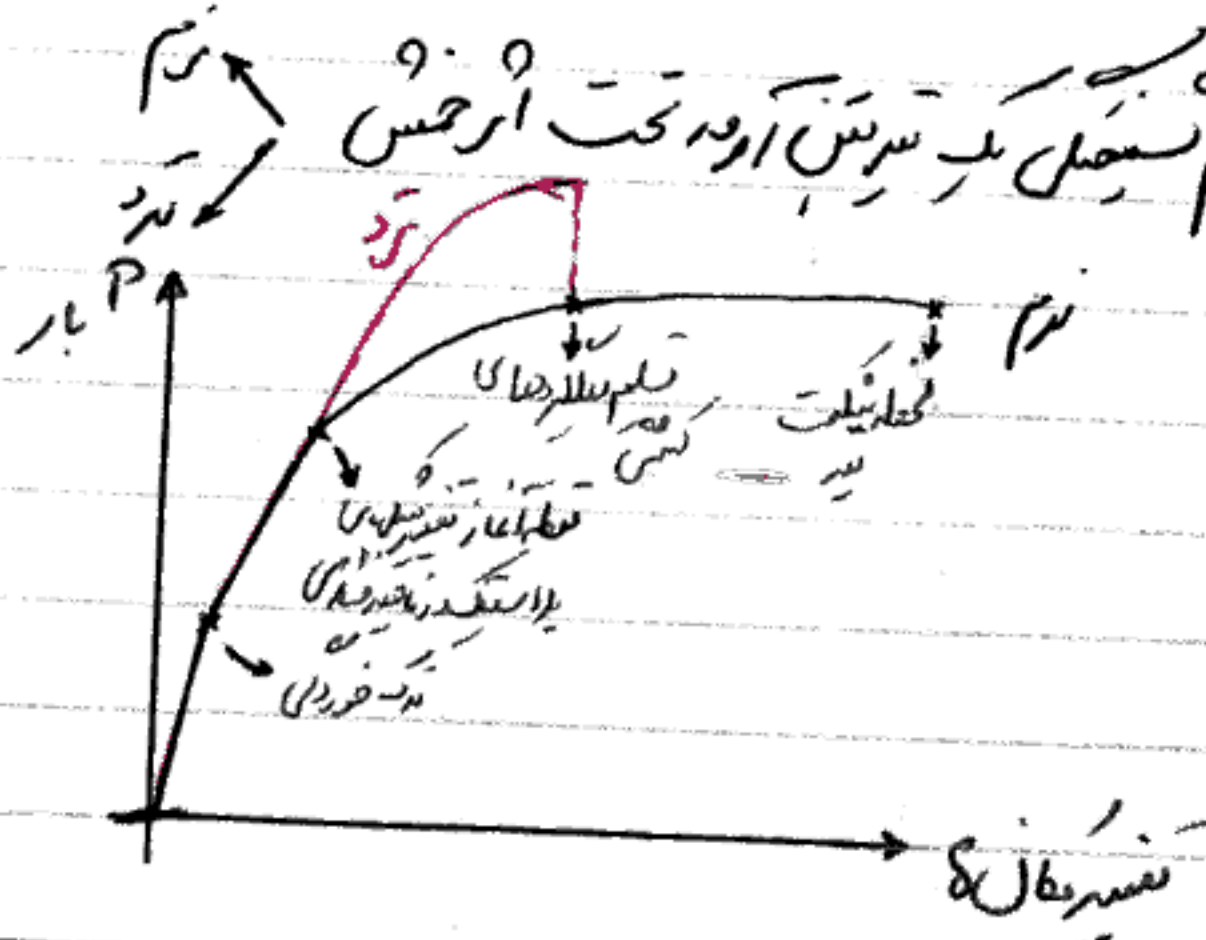 نرم
گسیختگی یک تیر بتن آرمه تحت اثر خمش
ترد
ترد
P
بار
نرم
تسلیم میلگردهای
کششی
لحظه شکست
تیر
نقطه آغاز تغییر شکلهای
پلاستیک در ناحیه فشاری
ترک خوردگی
تغییر مکان δ